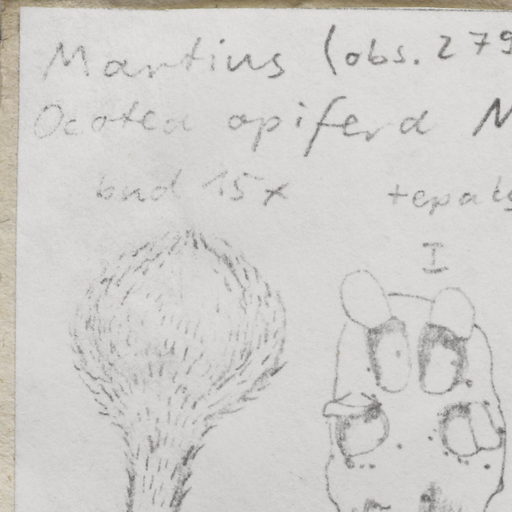 Martius (obs. 279
Ocotea apifera M
bud 15x tepals
I